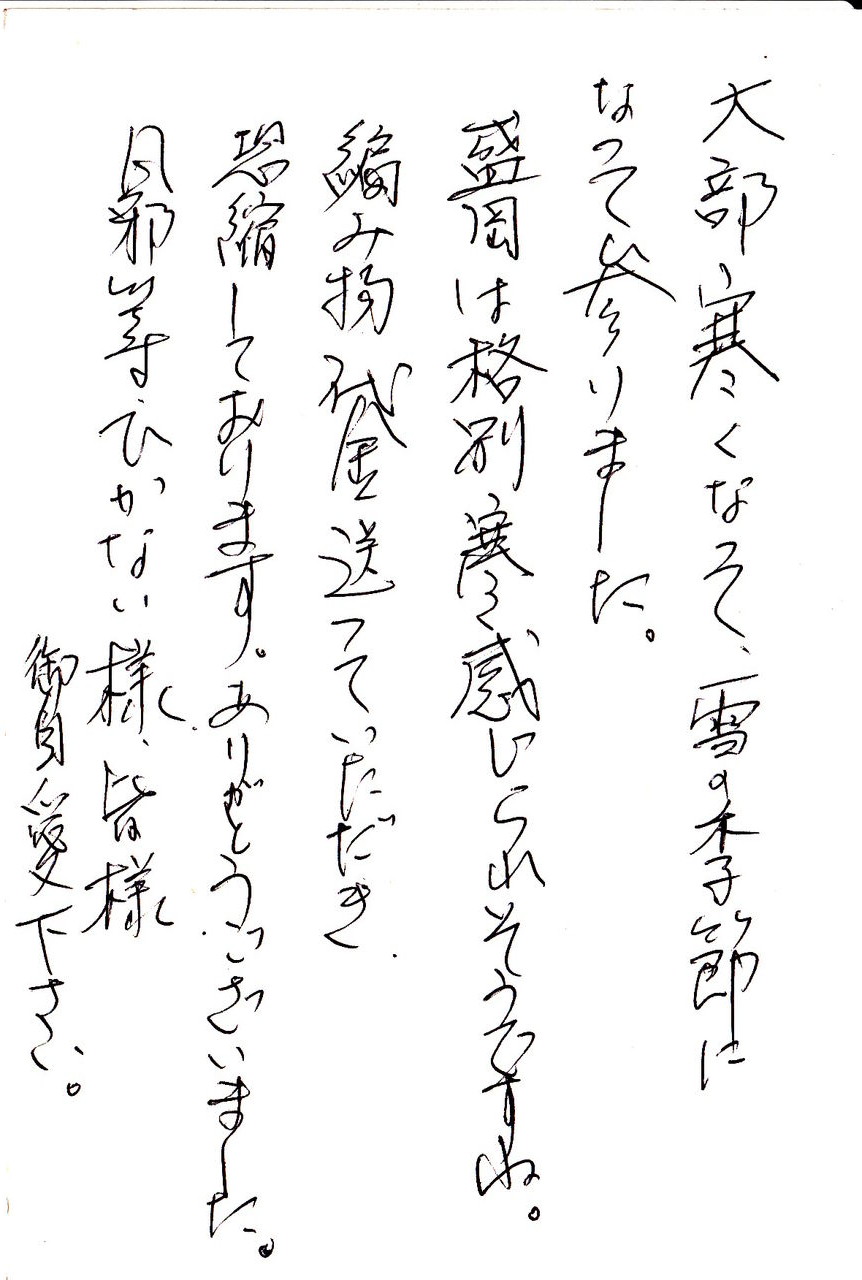 大部寒くなって、雪の季節に
なって参りました。
盛岡は格別寒く感じられそうですね。
編み物代金送っていただき
恐縮しております。ありがとうございました。
風邪等ひかない様、皆様
御自愛下さい。